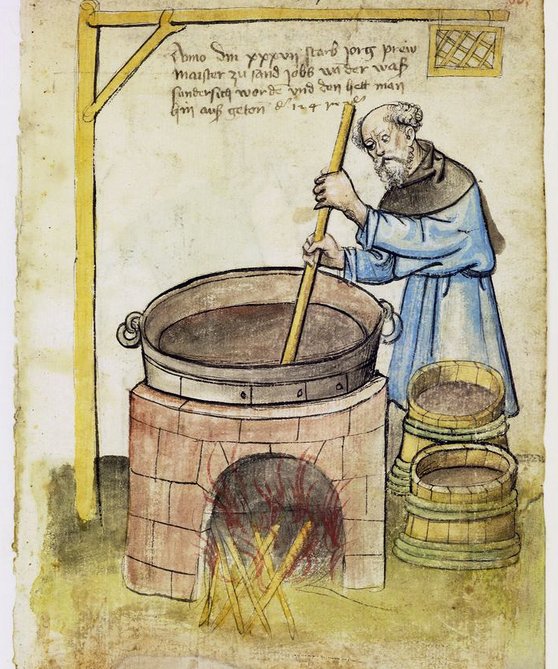 Anno dm xxxvii starb jorg prew
maister zu sand jobs wā der was
sundersich worde und den hett man
hin auß geton